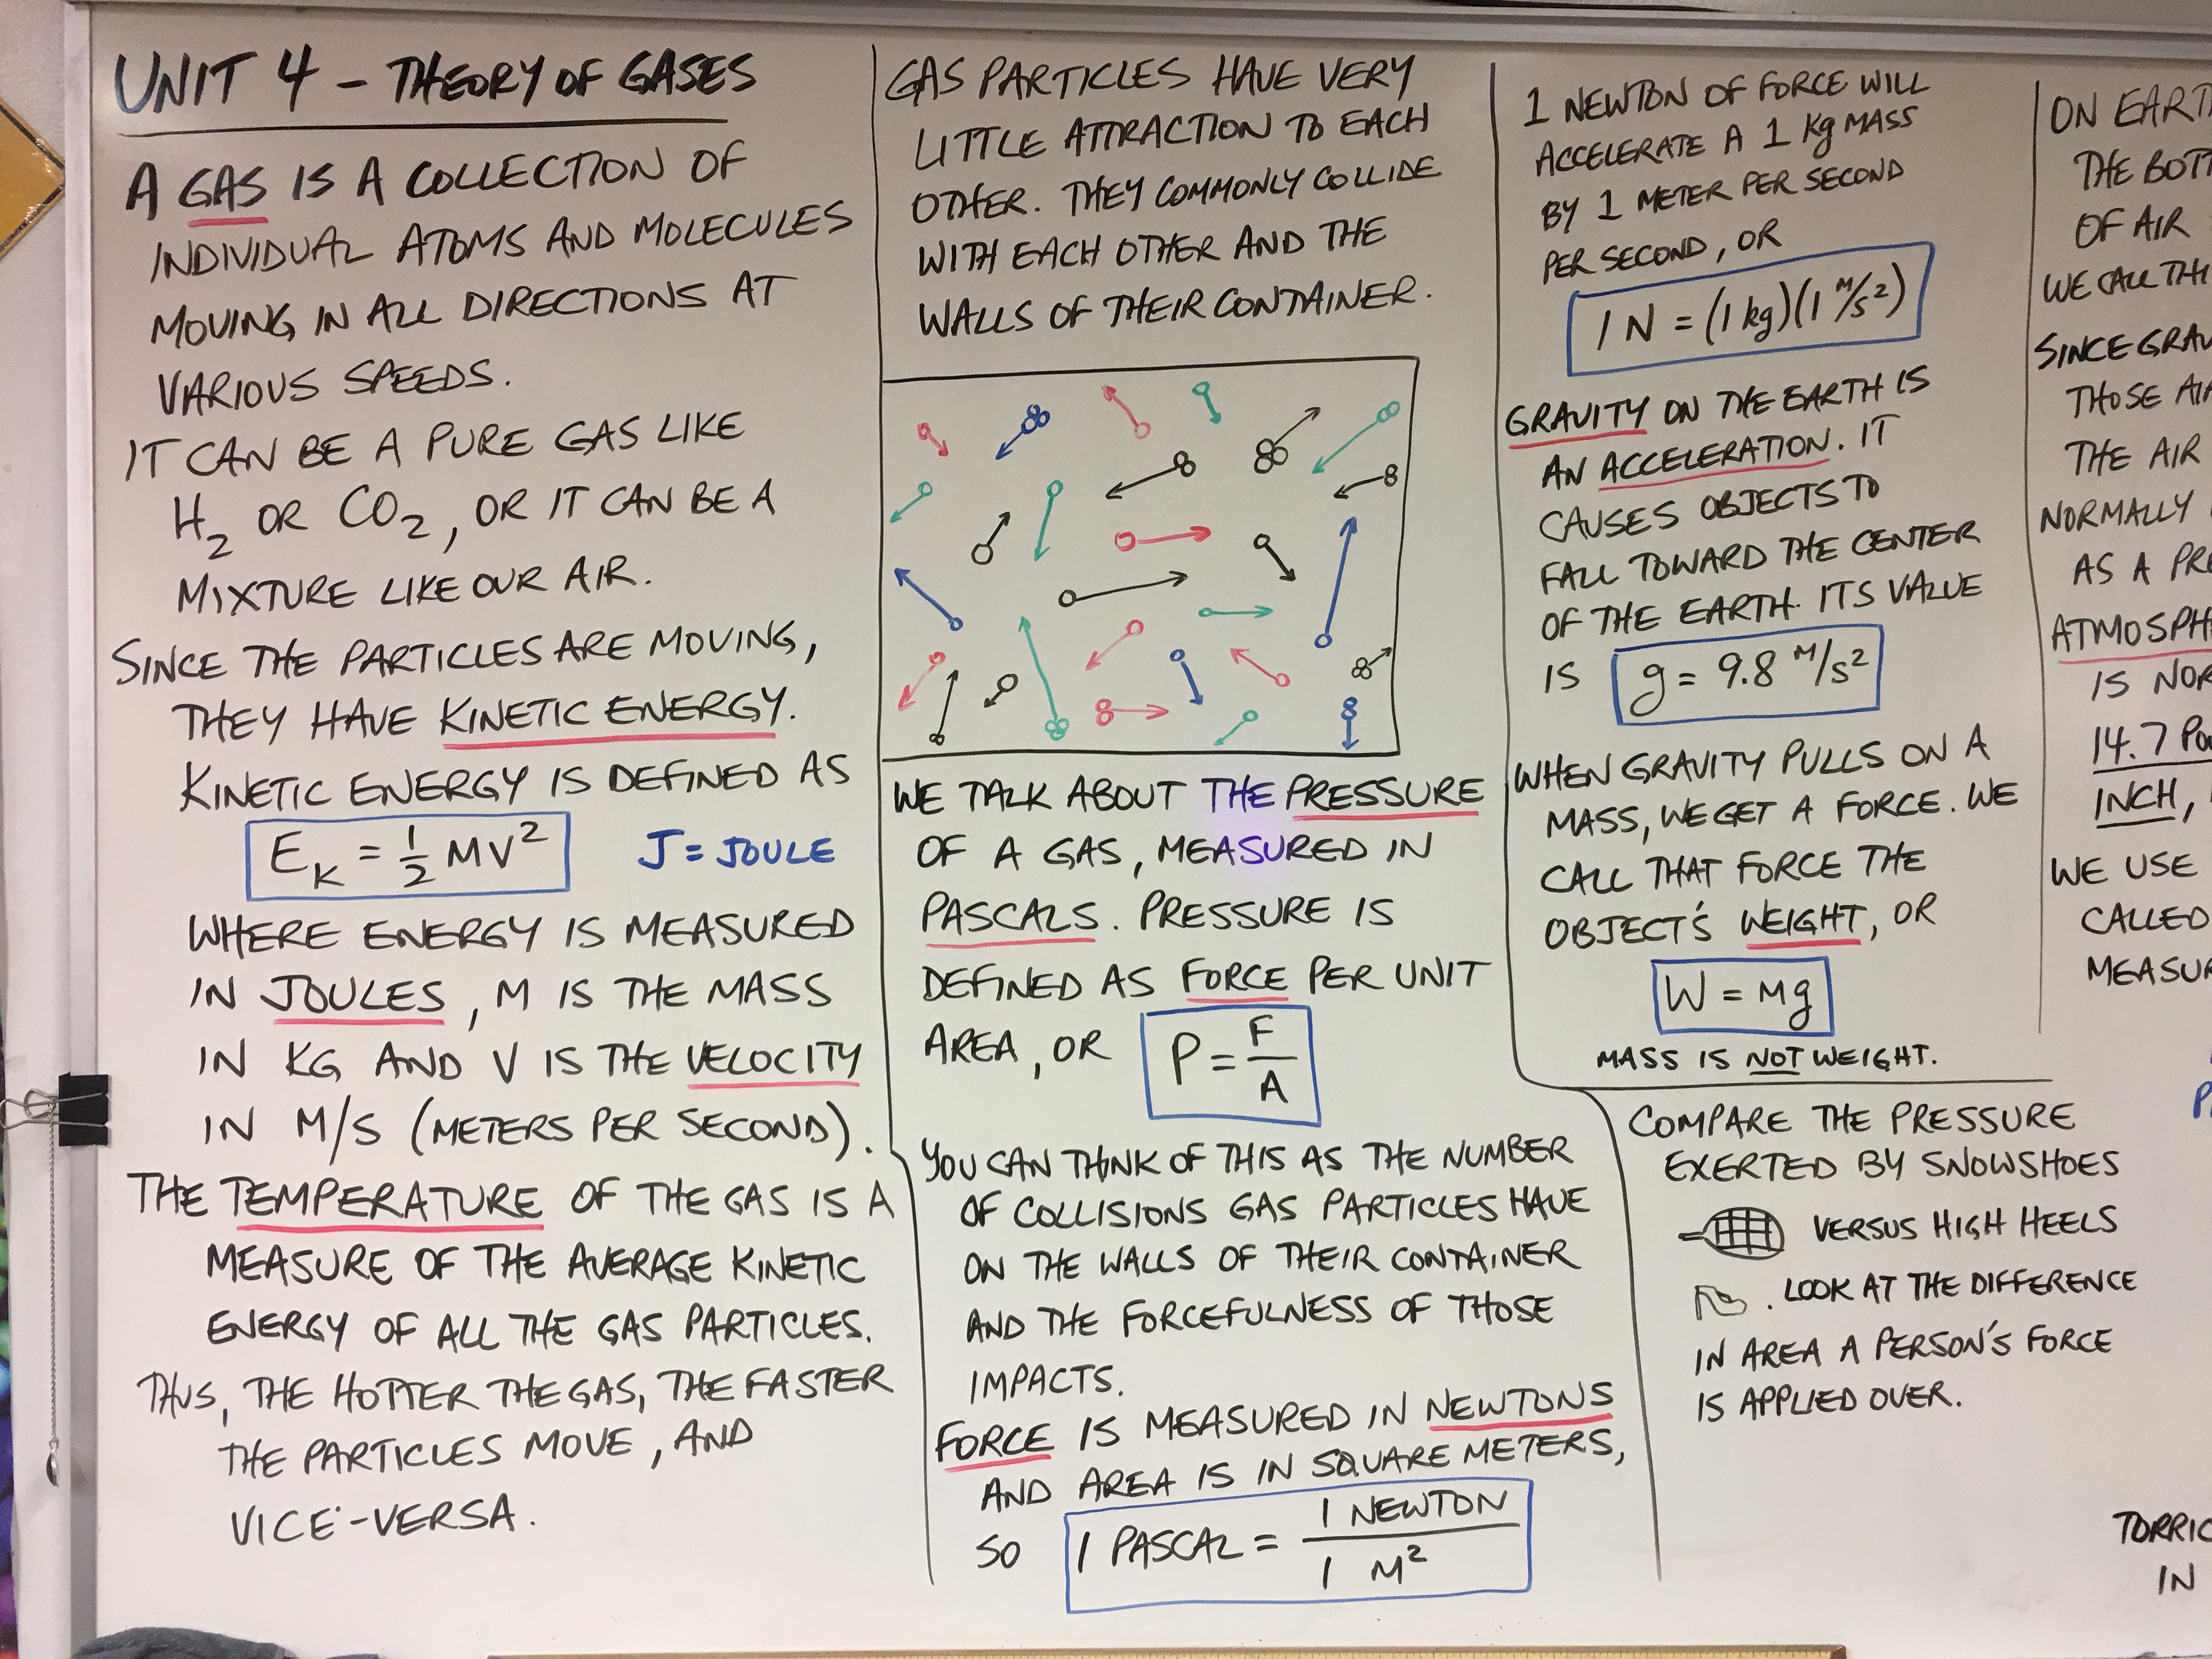 UNIT 4 - THEORY OF GASES
A GAS IS A COLLECTION OF
INDIVIDUAL ATOMS AND MOLECULES
MOVING IN ALL DIRECTIONS AT
VARIOUS SPEEDS.
IT CAN BE A PURE GAS LIKE
H₂ OR CO₂, OR IT CAN BE A
MIXTURE LIKE OUR AIR.
SINCE THE PARTICLES ARE MOVING,
THEY HAVE KINETIC ENERGY.
KINETIC ENERGY IS DEFINED AS
E_K = 1/2 MV² J = JOULE
WHERE ENERGY IS MEASURED
IN JOULES, M IS THE MASS
IN KG AND V IS THE VELOCITY
IN M/S (METERS PER SECOND).
THE TEMPERATURE OF THE GAS IS A
MEASURE OF THE AVERAGE KINETIC
ENERGY OF ALL THE GAS PARTICLES.
THUS, THE HOTTER THE GAS, THE FASTER
THE PARTICLES MOVE, AND
VICE-VERSA.
GAS PARTICLES HAVE VERY
LITTLE ATTRACTION TO EACH
OTHER. THEY COMMONLY COLLIDE
WITH EACH OTHER AND THE
WALLS OF THEIR CONTAINER.
WE TALK ABOUT THE PRESSURE
OF A GAS, MEASURED IN
PASCALS. PRESSURE IS
DEFINED AS FORCE PER UNIT
AREA, OR P = F/A
YOU CAN THINK OF THIS AS THE NUMBER
OF COLLISIONS GAS PARTICLES HAVE
ON THE WALLS OF THEIR CONTAINER
AND THE FORCEFULNESS OF THOSE
IMPACTS.
FORCE IS MEASURED IN NEWTONS
AND AREA IS IN SQUARE METERS,
SO 1 PASCAL = 1 NEWTON / 1 M²
1 NEWTON OF FORCE WILL
ACCELERATE A 1 Kg MASS
BY 1 METER PER SECOND
PER SECOND, OR
1 N = (1 kg)(1 M/S²)
GRAVITY ON THE EARTH IS
AN ACCELERATION. IT
CAUSES OBJECTS TO
FALL TOWARD THE CENTER
OF THE EARTH. ITS VALUE
IS g = 9.8 M/S²
WHEN GRAVITY PULLS ON A
MASS, WE GET A FORCE. WE
CALL THAT FORCE THE
OBJECT'S WEIGHT, OR
W = Mg
MASS IS NOT WEIGHT.
COMPARE THE PRESSURE
EXERTED BY SNOWSHOES
VERSUS HIGH HEELS
. LOOK AT THE DIFFERENCE
IN AREA A PERSON'S FORCE
IS APPLIED OVER.
ON EART
THE BOTT
OF AIR
WE CALL THI
SINCE GRAV
THOSE AI
THE AIR
NORMALLY
AS A PRE
ATMOSPH
IS NOR
14.7 POU
INCH,
WE USE
CALLED
MEASUR
TORRIC
IN